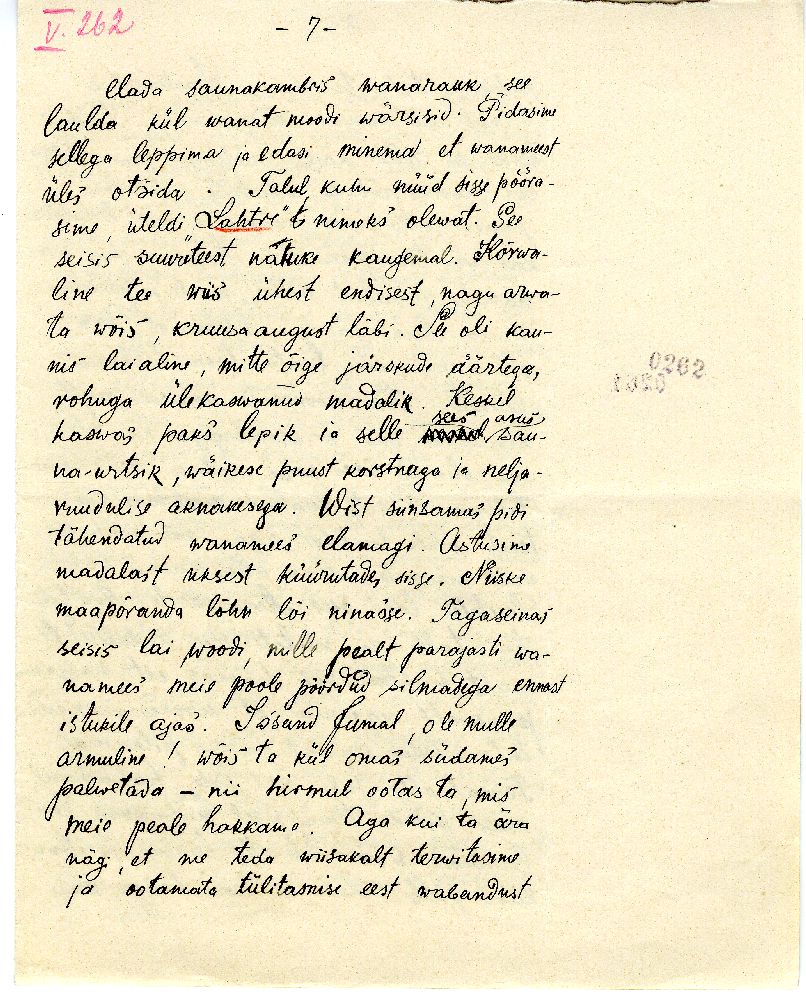 V. 262
- 7 -
elada saunakambris wanarauk, see
laulda kül wanat moodi wärsisid. Pidasime
sellega leppima ja edasi minema et wanameest
üles otsida. Talul kuhu nüüd sisse pööra-
sime, üteldi „Lahtri"t nimeks olewat. See
seisis suurteest nätuke kaugemal. Kõrwa-
line tee wiis ühest endisest, nagu arwa-
ta wõis, kruusaaugust läbi. See oli kau-
nis laialine, mitte õige järskude äärtega,
rohuga ülekaswanud madalik. Keskel
kaswas paks lepik ja selle sees asus sau-
na-urtsik, wäikese puust korstnaga ja nelja-
ruudulise aknakesega. Wist siinsamas pidi
tähendatud wanamees elamagi. Astusime
madalast uksest küürutades sisse. Niiske
maapõranda lõhn lõi ninasse. Tagaseinas
seisis lai woodi, mille pealt parajasti wa-
namees meie poole pöördud silmadega ennast
istukile ajas. Issand Jumal, ole mulle
armuline! wõis ta kül omas südames
palwetada – nii hirmul ootas ta, mis
meie peale hakkame. Aga kui ta ära
nägi, et me teda wiisakalt terwitasime
ja ootamata tülitamise eest wabandust
0262